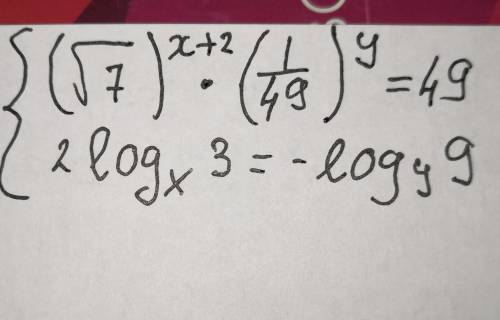 (√7)^(x+2) · (1/49)^y = 49
2 log_x 3 = - log_y 9